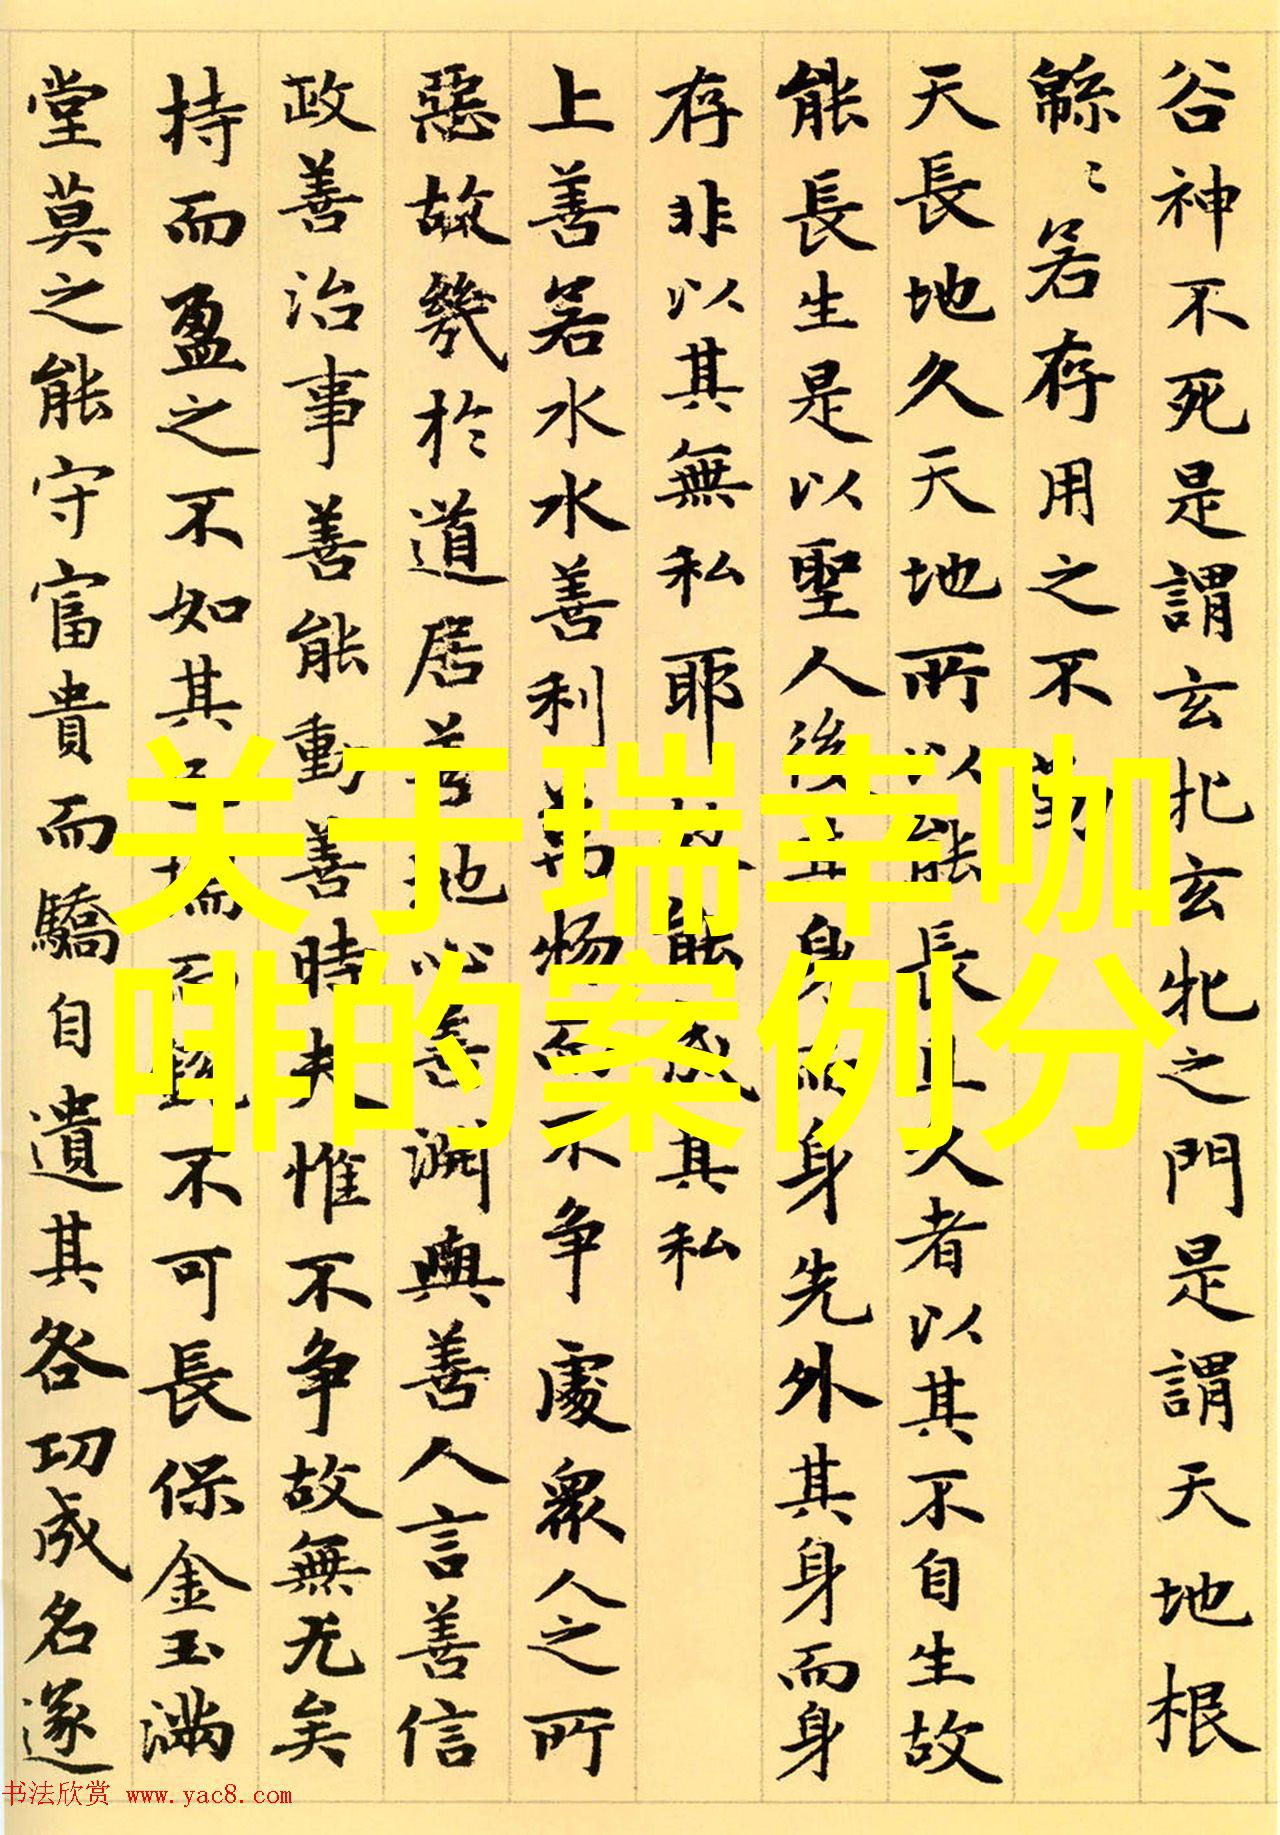 谷神不死是謂玄牝玄牝之門是謂天地根
緜〻若存用之不勤
天長地久天地所以能長且久者以其不自生故
能長生是以聖人後其身而身先外其身而身
存非以其無私耶故能成其私
上善若水水善利萬物而不争處衆人之所
惡故幾於道居善地心善渊與善人言善信
政善治事善能動善時夫惟不争故無尤矣
持而盈之不如其已揣而銳不可長保金玉滿
堂莫之能守富貴而驕自遺其咎功成名遂
关于瑞幸咖
啡的案例分
书法欣赏 www.yac8.com